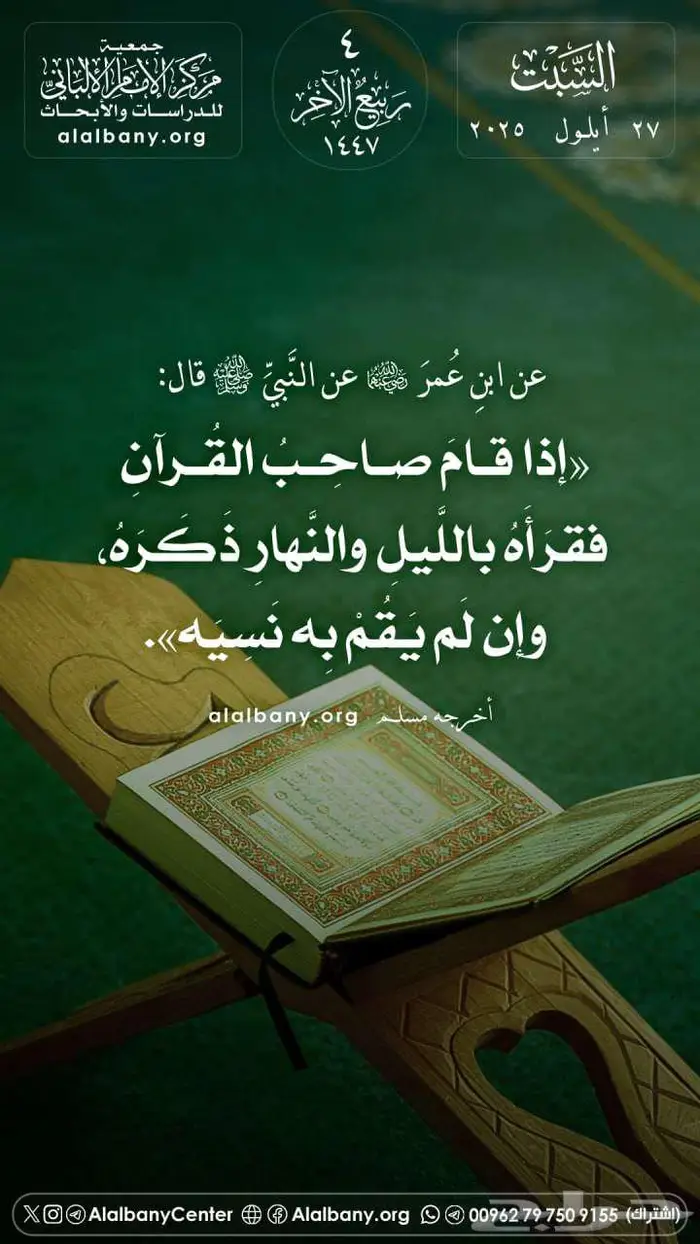 السَّبْت
٢٧ أيلول ٢٠٢٥
٤
رَبِيعُ الْآخِر
١٤٤٧
جمعية
مركز الإمام الألباني
للدراسات والأبحاث
alalbany.org
عن ابنِ عُمرَ رضي الله عنهما عن النَّبيِّ ﷺ قال:
«إذا قامَ صاحِبُ القُرآنِ
فقرَأَهُ باللَّيلِ والنَّهارِ ذَكَرَهُ،
وإن لَم يَقُمْ بِه نَسِيَه».
أخرجه مسلم alalbany.org
AlalbanyCenter Alalbany.org 00962 79 750 9155 (اشتراك)
حراج